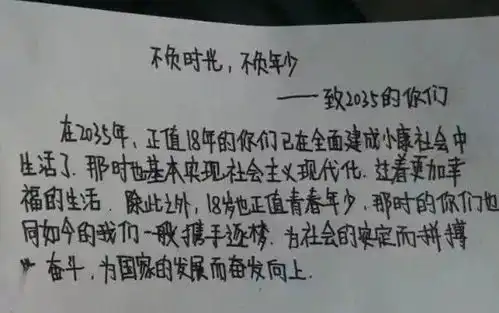 不负时光，不负年少
——致2035的你们
在2035年，正值18年的你们已在全面建成小康社会中
生活了．那时也基本实现社会主义现代化．过着更加幸
福的生活．除此之外，18岁也正值青春年少．那时的你们也
同如今的我们一般携手逐梦．为社会的安定而拼搏
奋斗，为国家的发展而奋发向上．